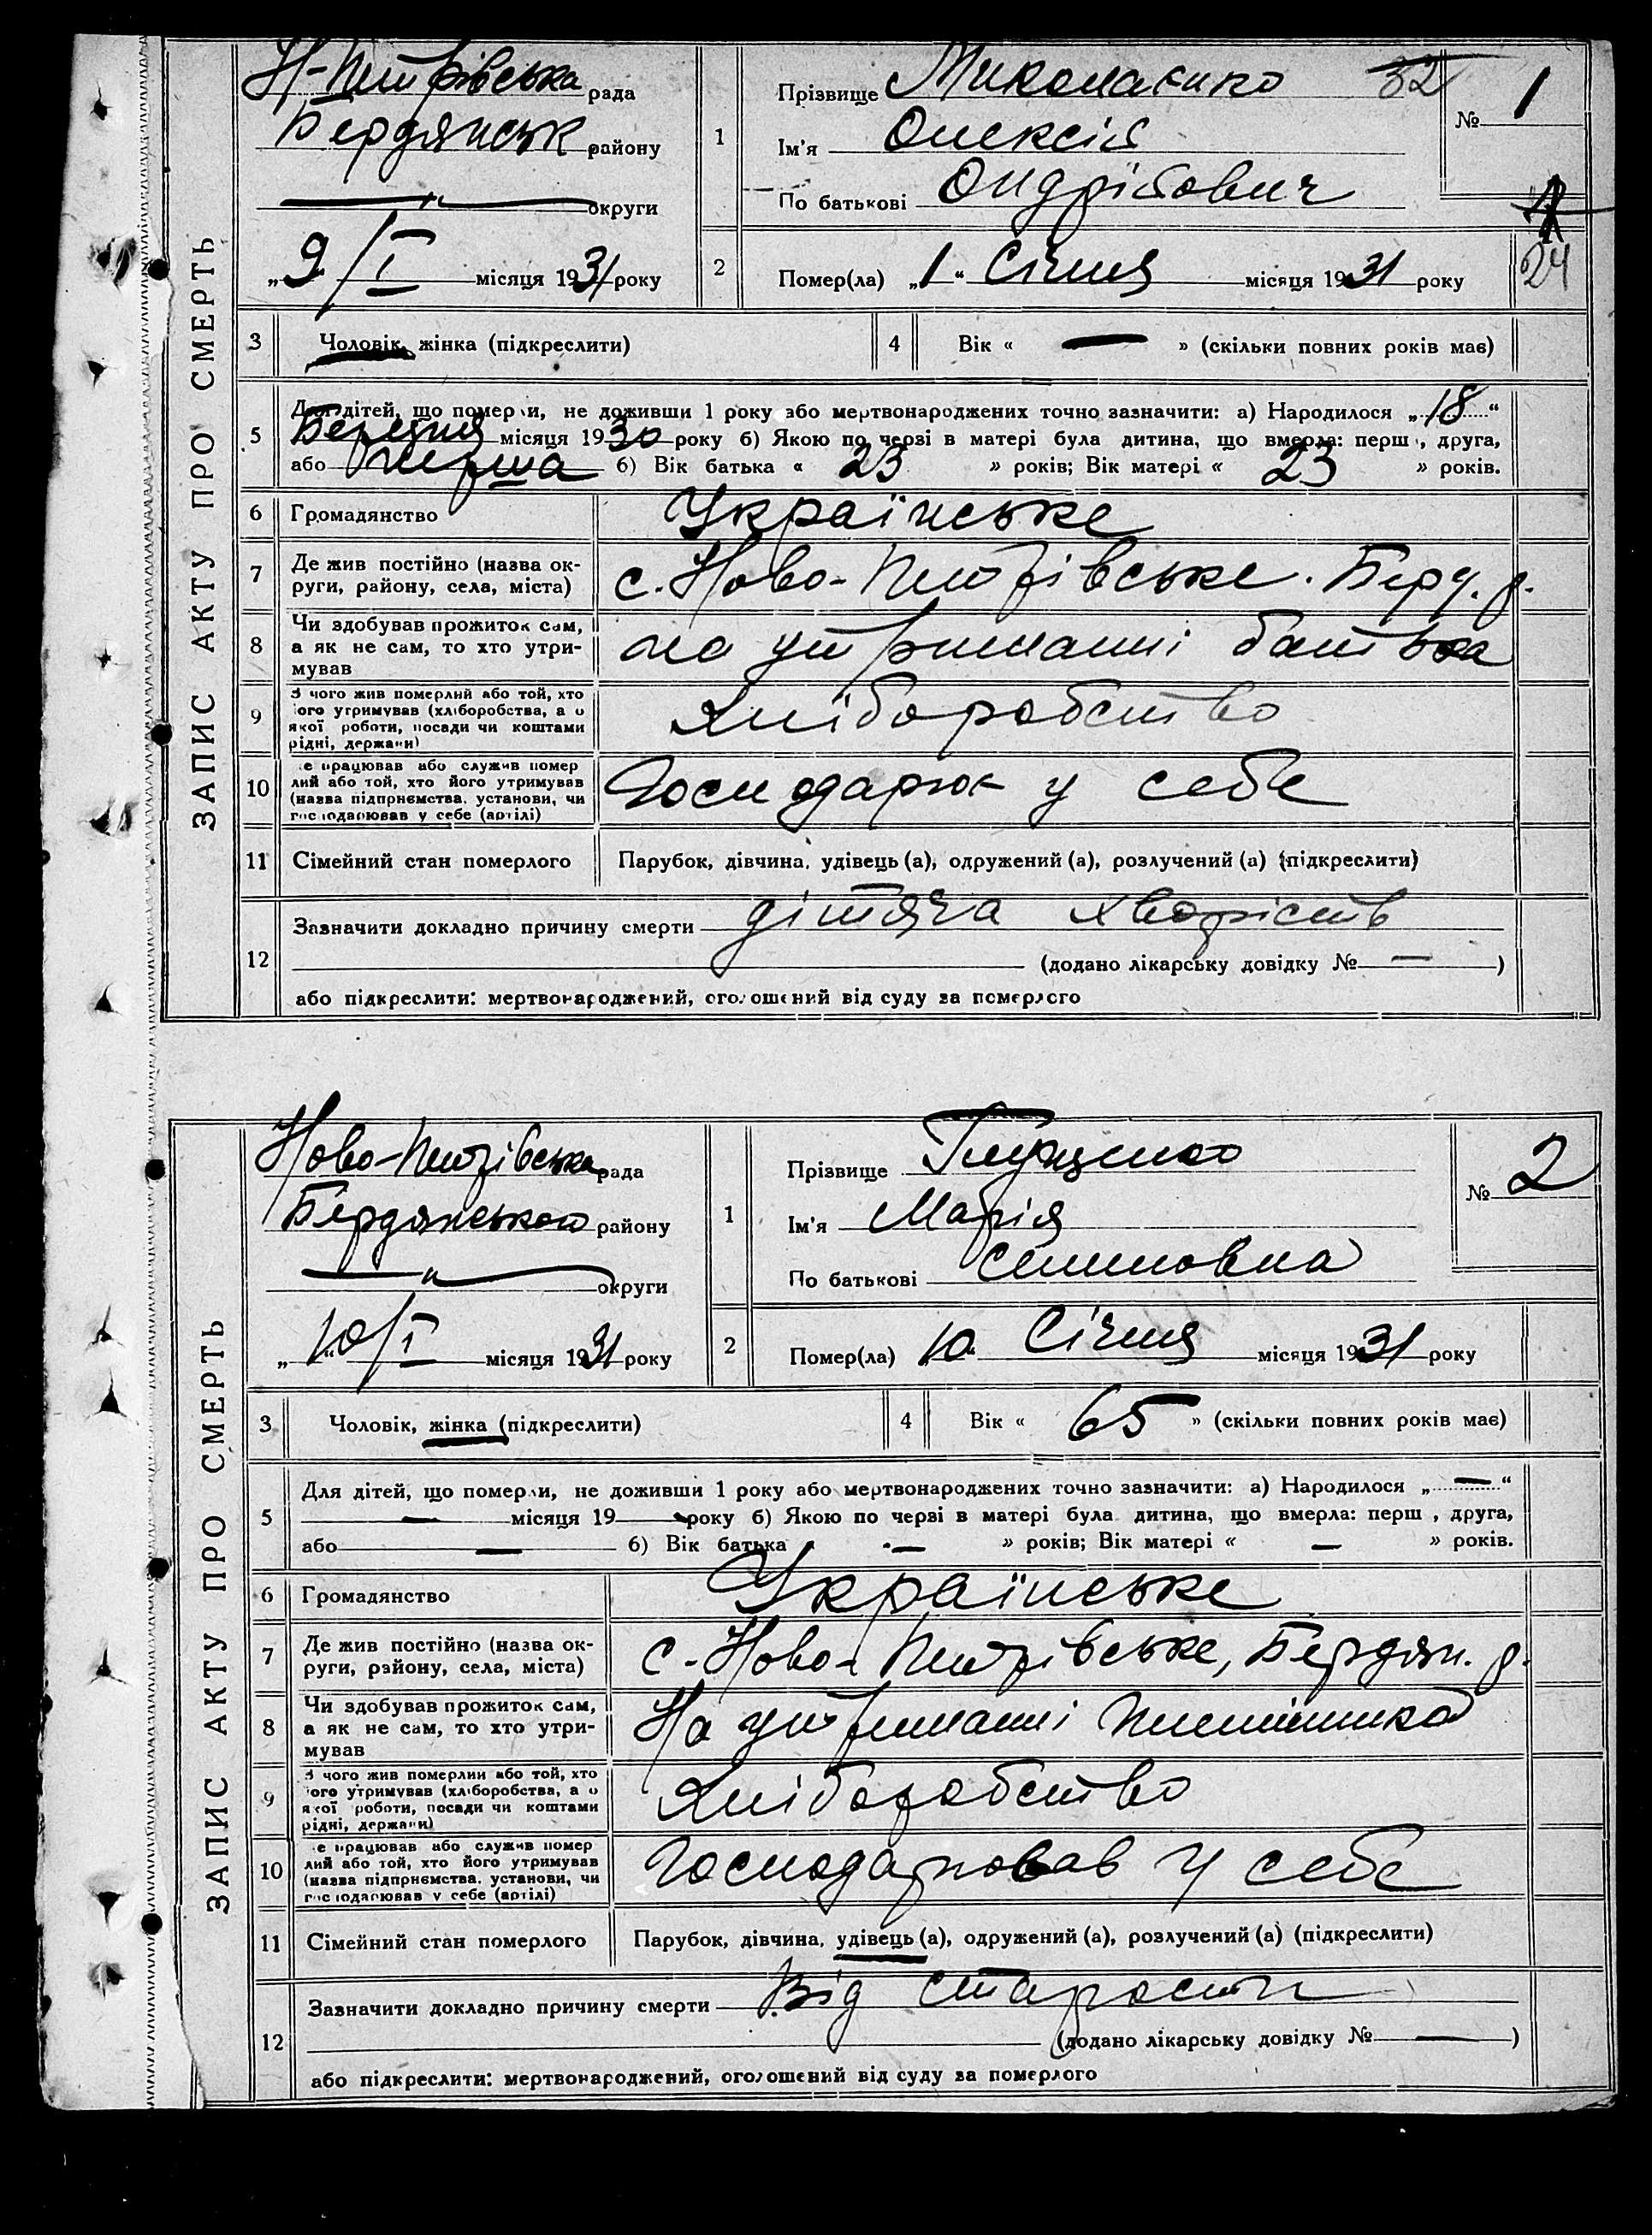 ЗАПИС АКТУ ПРО СМЕРТЬ
Н-Петрівська рада
Бердянськ району
—„— округи
„9/I місяця 1931 року
1
Прізвище Миколаєнко 32
Ім'я Олексій
По батькові Ондрійович
№ 1
24
2 Помер(ла) „1“ Січня місяця 1931 року
3 Чоловік, жінка (підкреслити)
4 Вік « — » (скільки повних років має)
5 Для дітей, що померли, не доживши 1 року або мертвонароджених точно зазначити: а) Народилося „18“
Березня місяця 1930 року б) Якою по черзі в матері була дитина, що вмерла: перш , друга,
або перша б) Вік батька « 23 » років; Вік матері « 23 » років.
6 Громадянство Українське
7 Де жив постійно (назва ок-
руги, району, села, міста) с. Ново-Петрівське. Берд. р.
8 Чи здобував прожиток сам,
а як не сам, то хто утри-
мував на утриманні батька
9 З чого жив померлий або той, хто
його утримував (хліборобства, а о
якої роботи, посади чи коштами
рідні, держави) Хліборобство
10 е працював або служив помер
лий або той, хто його утримував
(назва підприємства, установи, чи
господарював у себе (артілі) Господарюк у себе
11 Сімейний стан померлого Парубок, дівчина, удівець (а), одружений (а), розлучений (а) (підкреслити)
12 Зазначити докладно причину смерти дітяча хворість
(додано лікарську довідку № — )
або підкреслити: мертвонароджений, оголошений від суду за померлого
ЗАПИС АКТУ ПРО СМЕРТЬ
Ново-Петрівська рада
Бердянського району
—„— округи
„10“/I місяця 1931 року
1
Прізвище Глущенко
Ім'я Марія
По батькові Семиновна
№ 2
2 Помер(ла) 10 Січня місяця 1931 року
3 Чоловік, жінка (підкреслити)
4 Вік « 65 » (скільки повних років має)
5 Для дітей, що померли, не доживши 1 року або мертвонароджених точно зазначити: а) Народилося „—“
— місяця 19 року б) Якою по черзі в матері була дитина, що вмерла: перш , друга,
або — б) Вік батька « — » років; Вік матері « — » років.
6 Громадянство Українське
7 Де жив постійно (назва ок-
руги, району, села, міста) с. Ново-Петрівське, Бердян. р.
8 Чи здобував прожиток сам,
а як не сам, то хто утри-
мував На утриманні
9 З чого жив померлий або той, хто
його утримував (хліборобства, а о
якої роботи, посади чи коштами
рідні, держави) Хліборобство
10 е працював або служив помер
лий або той, хто його утримував
(назва підприємства, установи, чи
господарював у себе (артілі) Господарював у себе
11 Сімейний стан померлого Парубок, дівчина, удівець (а), одружений (а), розлучений (а) (підкреслити)
12 Зазначити докладно причину смерти Від старости
(додано лікарську довідку № — )
або підкреслити: мертвонароджений, оголошений від суду за померлого